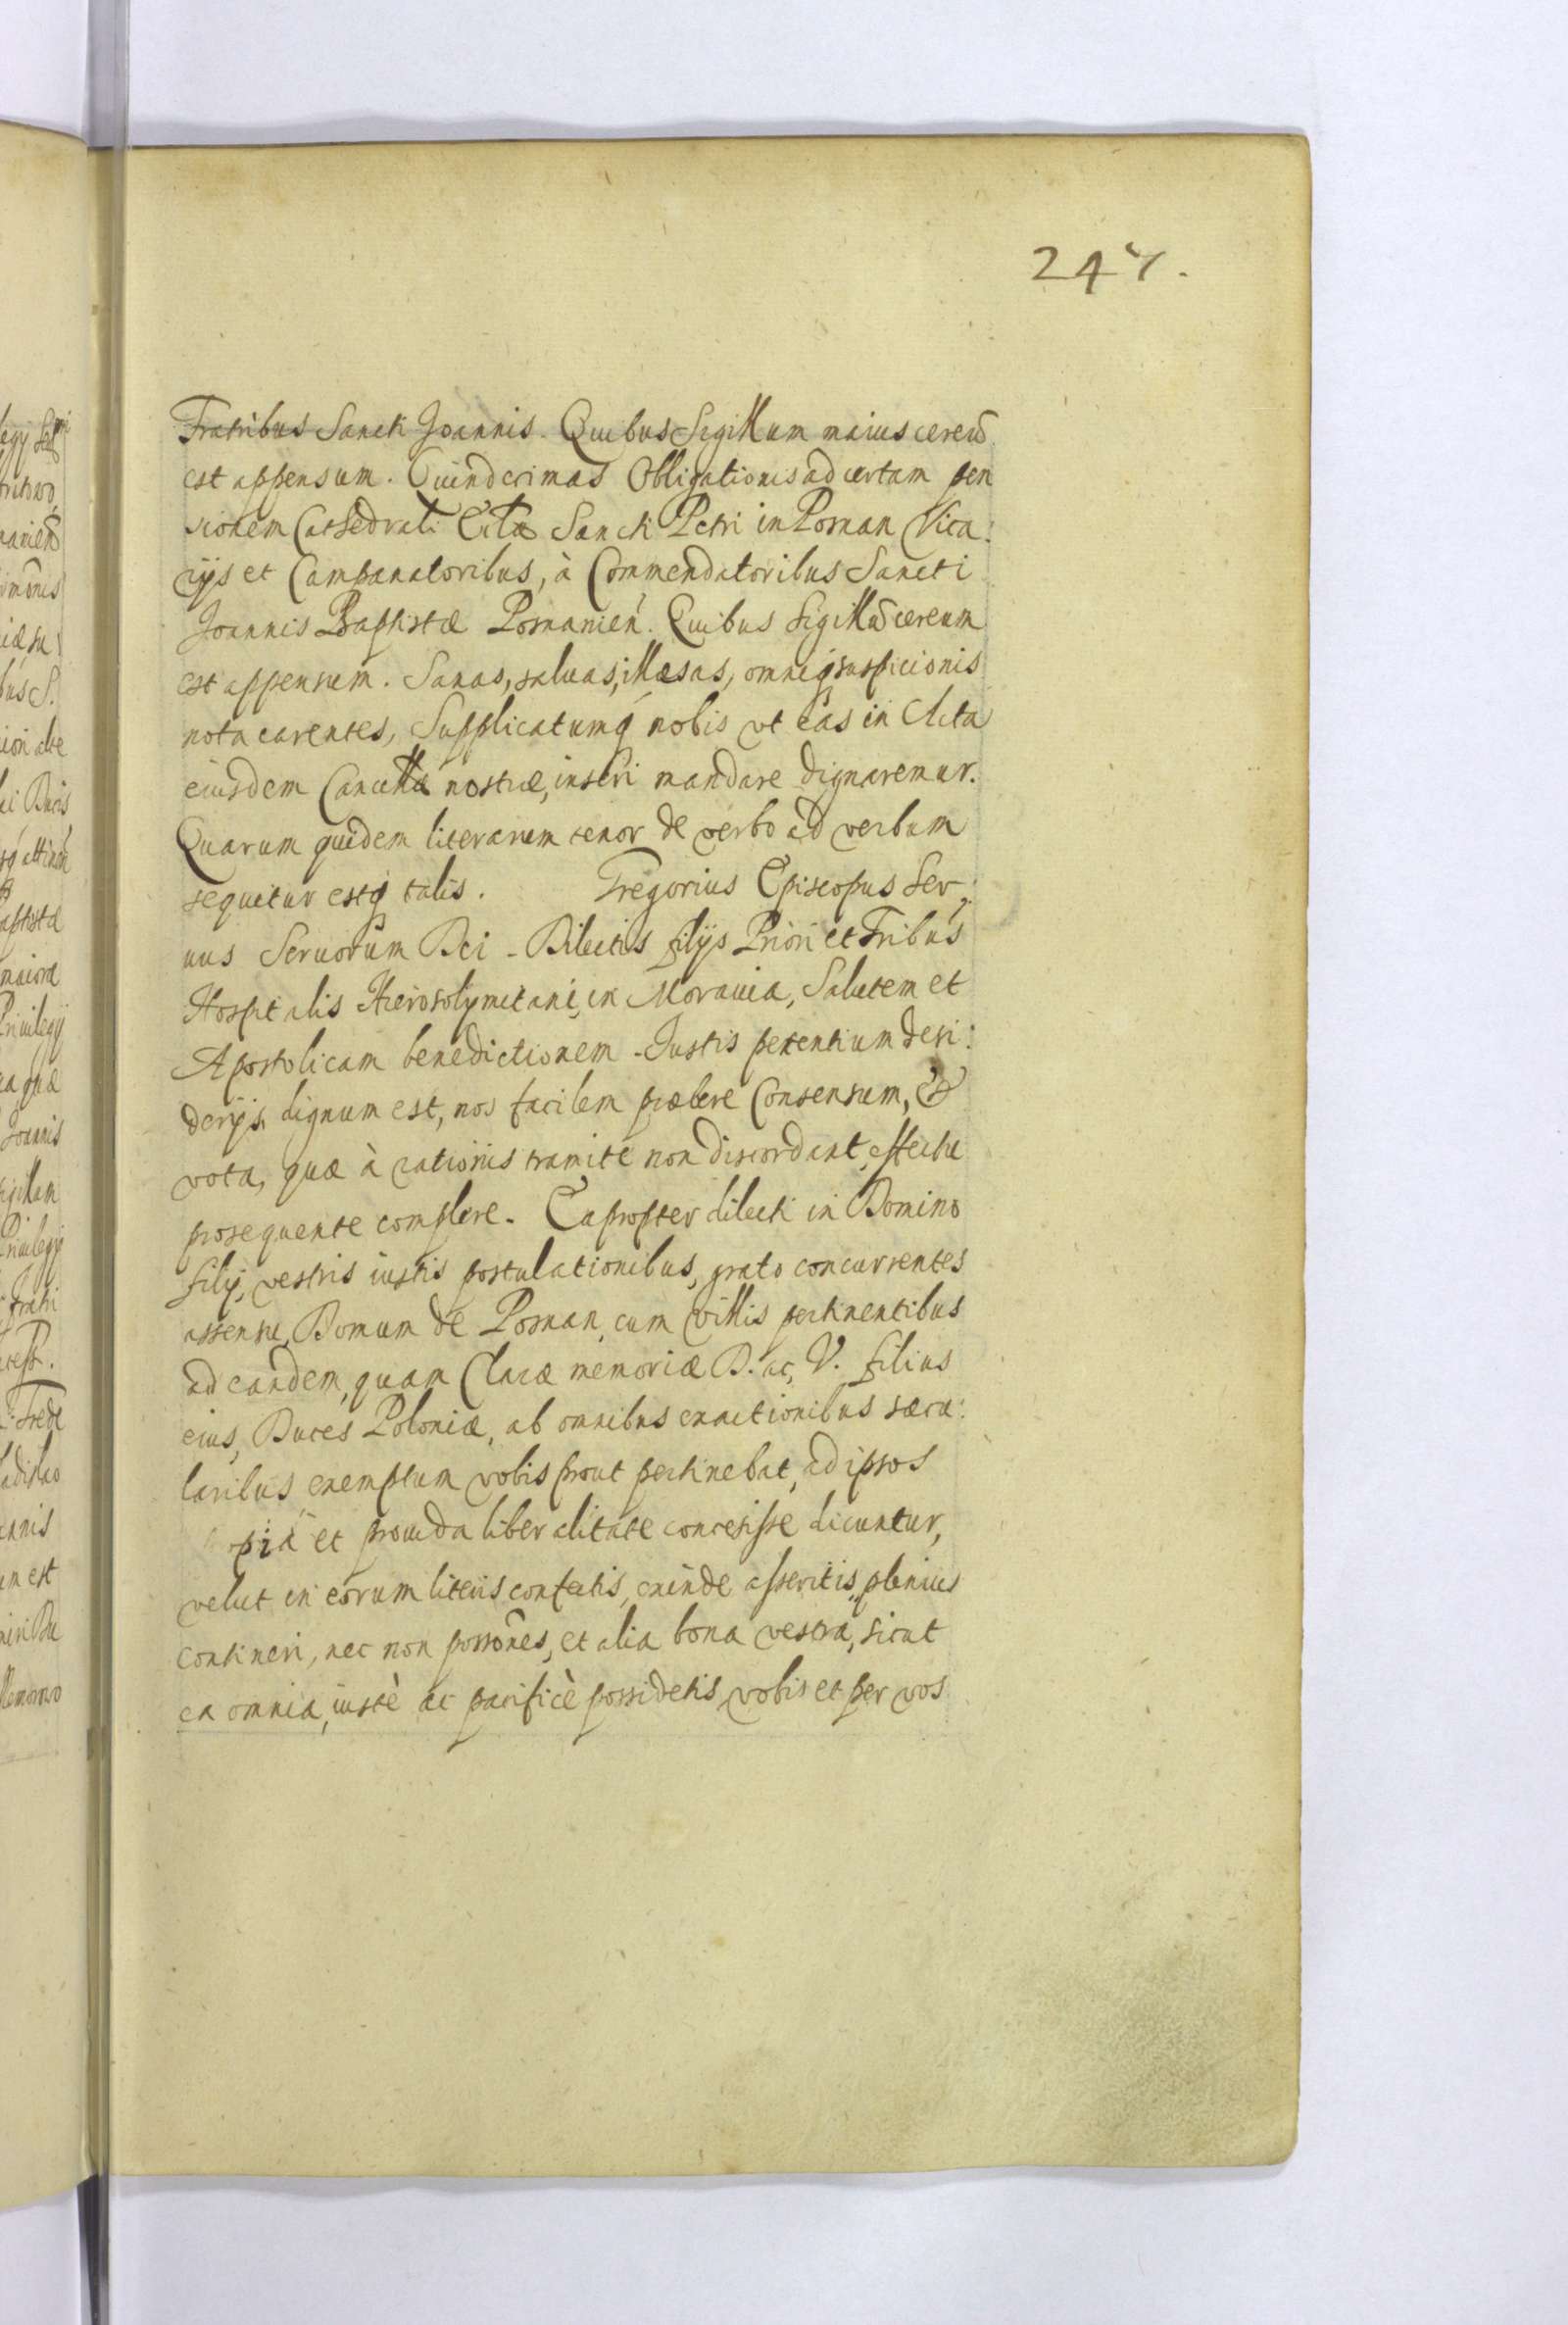 247.
Fratribus Sancti Joannis. Quibus Sigillum maius cereũ
est appensum. Quindecimas Obligationis ad certam pen
sionem Cathedrali Ecclæ Sancti Petri in Posnan Vica:
rijs et Campanatoribus, à Commendatoribus Sancti
Joannis Baptistæ Posnanień. Quibus Sigillũ cereum
est appensum. Sanas, saluas, illæsas, omniq̃ suspicionis
nota carentes, Supplicatumq̃ nobis vt eas in Acta
eiusdem Cancellæ nostræ, inseri mandare dignaremur.
Quarum quidem literarum tenor de verbo ad verbum
sequitur estq̃ talis. Gregorius Episcopus Ser:
uus Seruorum Dei. Dilectis filijs Priori et Fribus
Hospitalis Hierosolymitani, in Morauia, Salutem et
Apostolicam benedictionem. Iustis petentium desi:
derijs, dignum est, nos facilem præbere Consensum, &
vota, quæ à rationis tramite non discordant, effectu
prosequente complere. Eapropter dilecti in Domino
filij, vestris iustis postulationibus, grato concurrentes
assensu, Domum de Posnan, cum villis pertinentibus
ad eandem, quam Claræ memoriæ D. ac, V. filius
eius, Duces Poloniæ, ab omnibus exactionibus sæcu:
laribus, exemptam vobis prout pertinebat, ad ipsos
pià et prouida liberalitate concesisse dicuntur,
velut in eorum literis confectis, exinde asseritis, plenius
contineri, nec non possões, et alia bona vestra, sicut
ea omnia, iustè ac pacificè possidetis, vobis et per vos